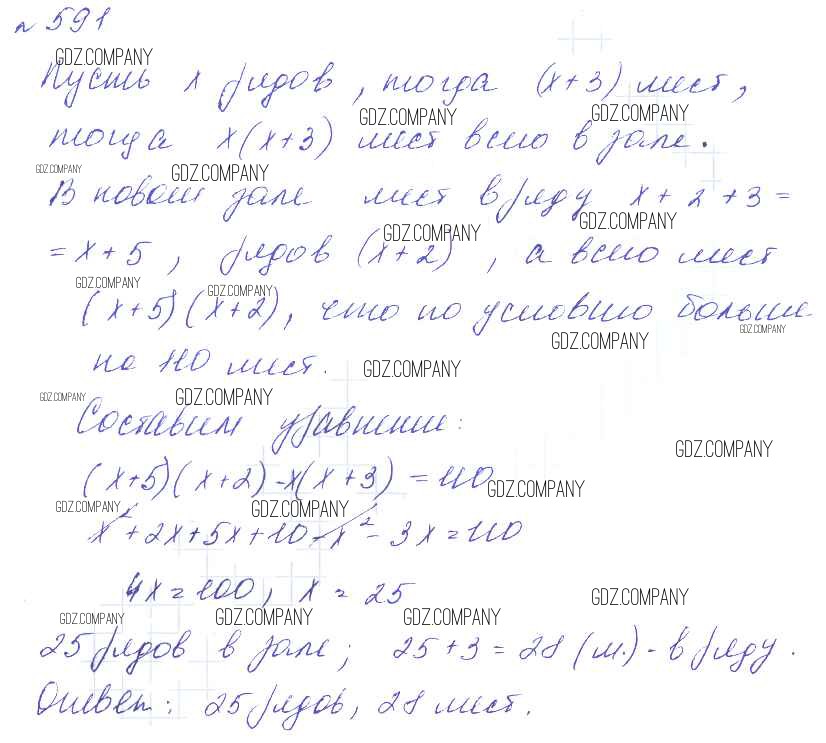 № 591
GDZ.COMPANY
Пусть x рядов, тогда (x+3) мест,
GDZ.COMPANY GDZ.COMPANY
тогда x(x+3) мест всего в зале.
GDZ.COMPANY GDZ.COMPANY
В новом зале мест в ряду x+2+3=
GDZ.COMPANY GDZ.COMPANY
=x+5, рядов (x+2), а всего мест
GDZ.COMPANY GDZ.COMPANY
(x+5)(x+2), что по условию больше
GDZ.COMPANY GDZ.COMPANY
на 110 мест. GDZ.COMPANY
GDZ.COMPANY GDZ.COMPANY
Составим уравнение:
GDZ.COMPANY
(x+5)(x+2)-x(x+3)=110
GDZ.COMPANY GDZ.COMPANY GDZ.COMPANY
x²+2x+5x+10-x²-3x=110
4x=100, x=25
GDZ.COMPANY
GDZ.COMPANY GDZ.COMPANY GDZ.COMPANY
25 рядов в зале; 25+3=28 (м.) - в ряду.
Ответ: 25 рядов, 28 мест.